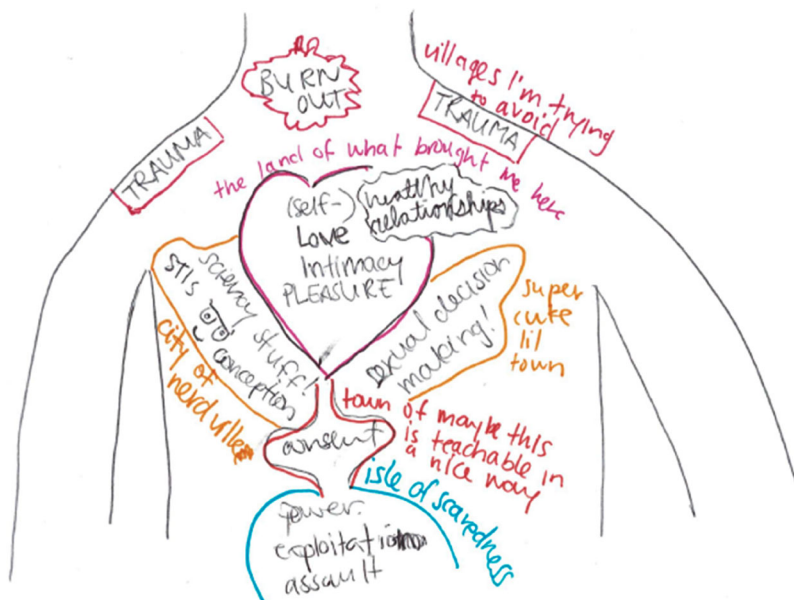 BURN
OUT
villages I'm trying
to avoid
TRAUMA
TRAUMA
the land of what brought me here
(self-)
Love
Intimacy
PLEASURE
healthy
relationships
STIs
sciency stuff!
conception
city of
nerdville
sexual decision
making!
super
cute
lil
town
consent
town of maybe this
is teachable in
a nice way
isle of scaredness
power
exploitation
assault